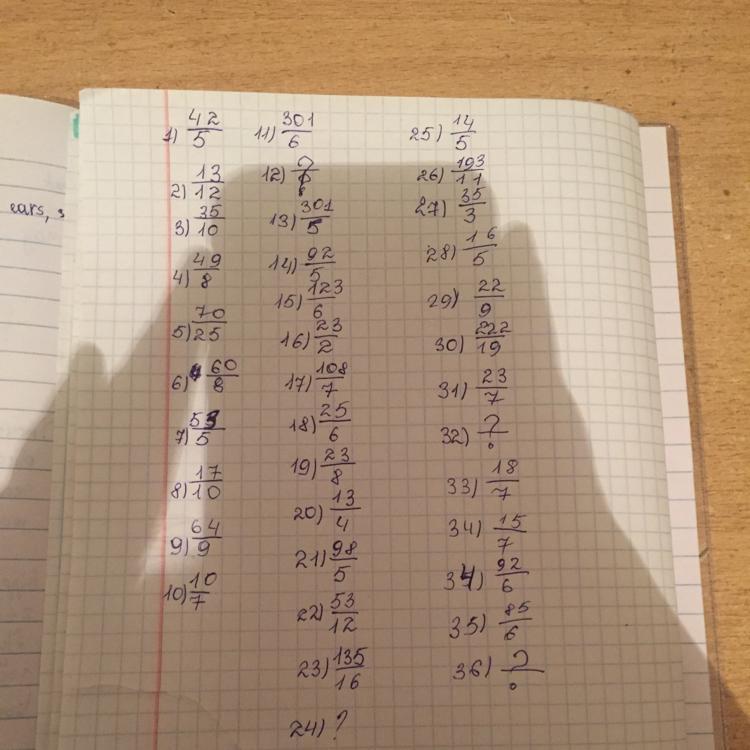 ears,
1) 42/5
2) 13/12
3) 35/10
4) 49/8
5) 70/25
6) 60/8
7) 53/5
8) 17/10
9) 64/9
10) 10/7
11) 301/6
12) ?
13) 301/5
14) 92/5
15) 123/6
16) 23/2
17) 108/7
18) 25/6
19) 23/8
20) 13/4
21) 98/5
22) 53/12
23) 135/16
24) ?
25) 14/5
26) 193/11
27) 35/3
28) 16/5
29) 22/9
30) 222/19
31) 23/7
32) ?
33) 18/7
34) 15/7
34) 92/6
35) 85/6
36) ?